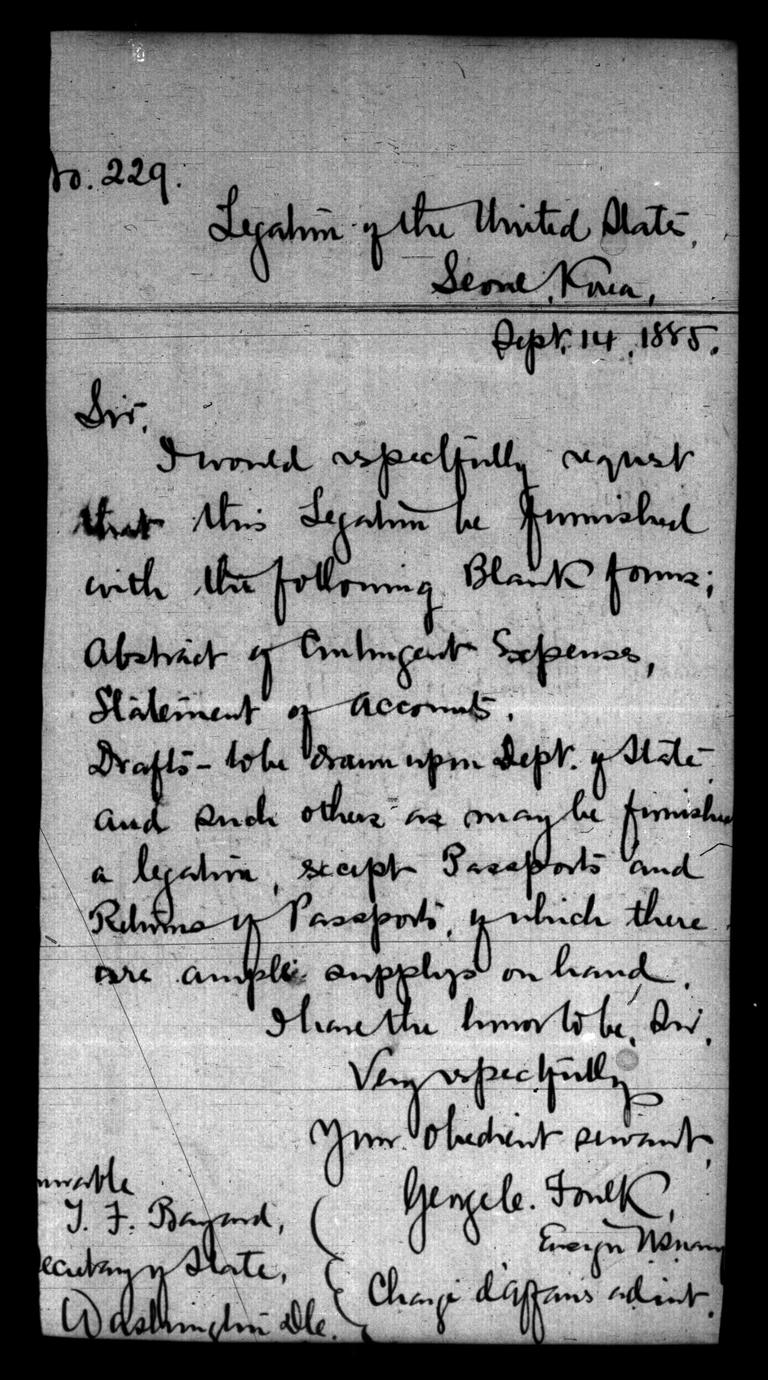 No. 229.
Legation of the United States,
Seoul, Korea,
Sept. 14, 1885.
Sir,
I would respectfully request
that this Legation be furnished
with the following Blank forms;
Abstract of Contingent Expenses,
Statement of Accounts,
Drafts - to be drawn upon Dept. of State
and such others as may be furnished
a legation, except Passports and
Returns of Passports, of which there
are ample supplys on hand.
I have the honor to be, Sir,
Very respectfully
Your obedient servant,
George C. Foulk,
Ensign
Chargé d'affaires ad int.
norable
T. F. Bayard,
ecretary of State,
Washington